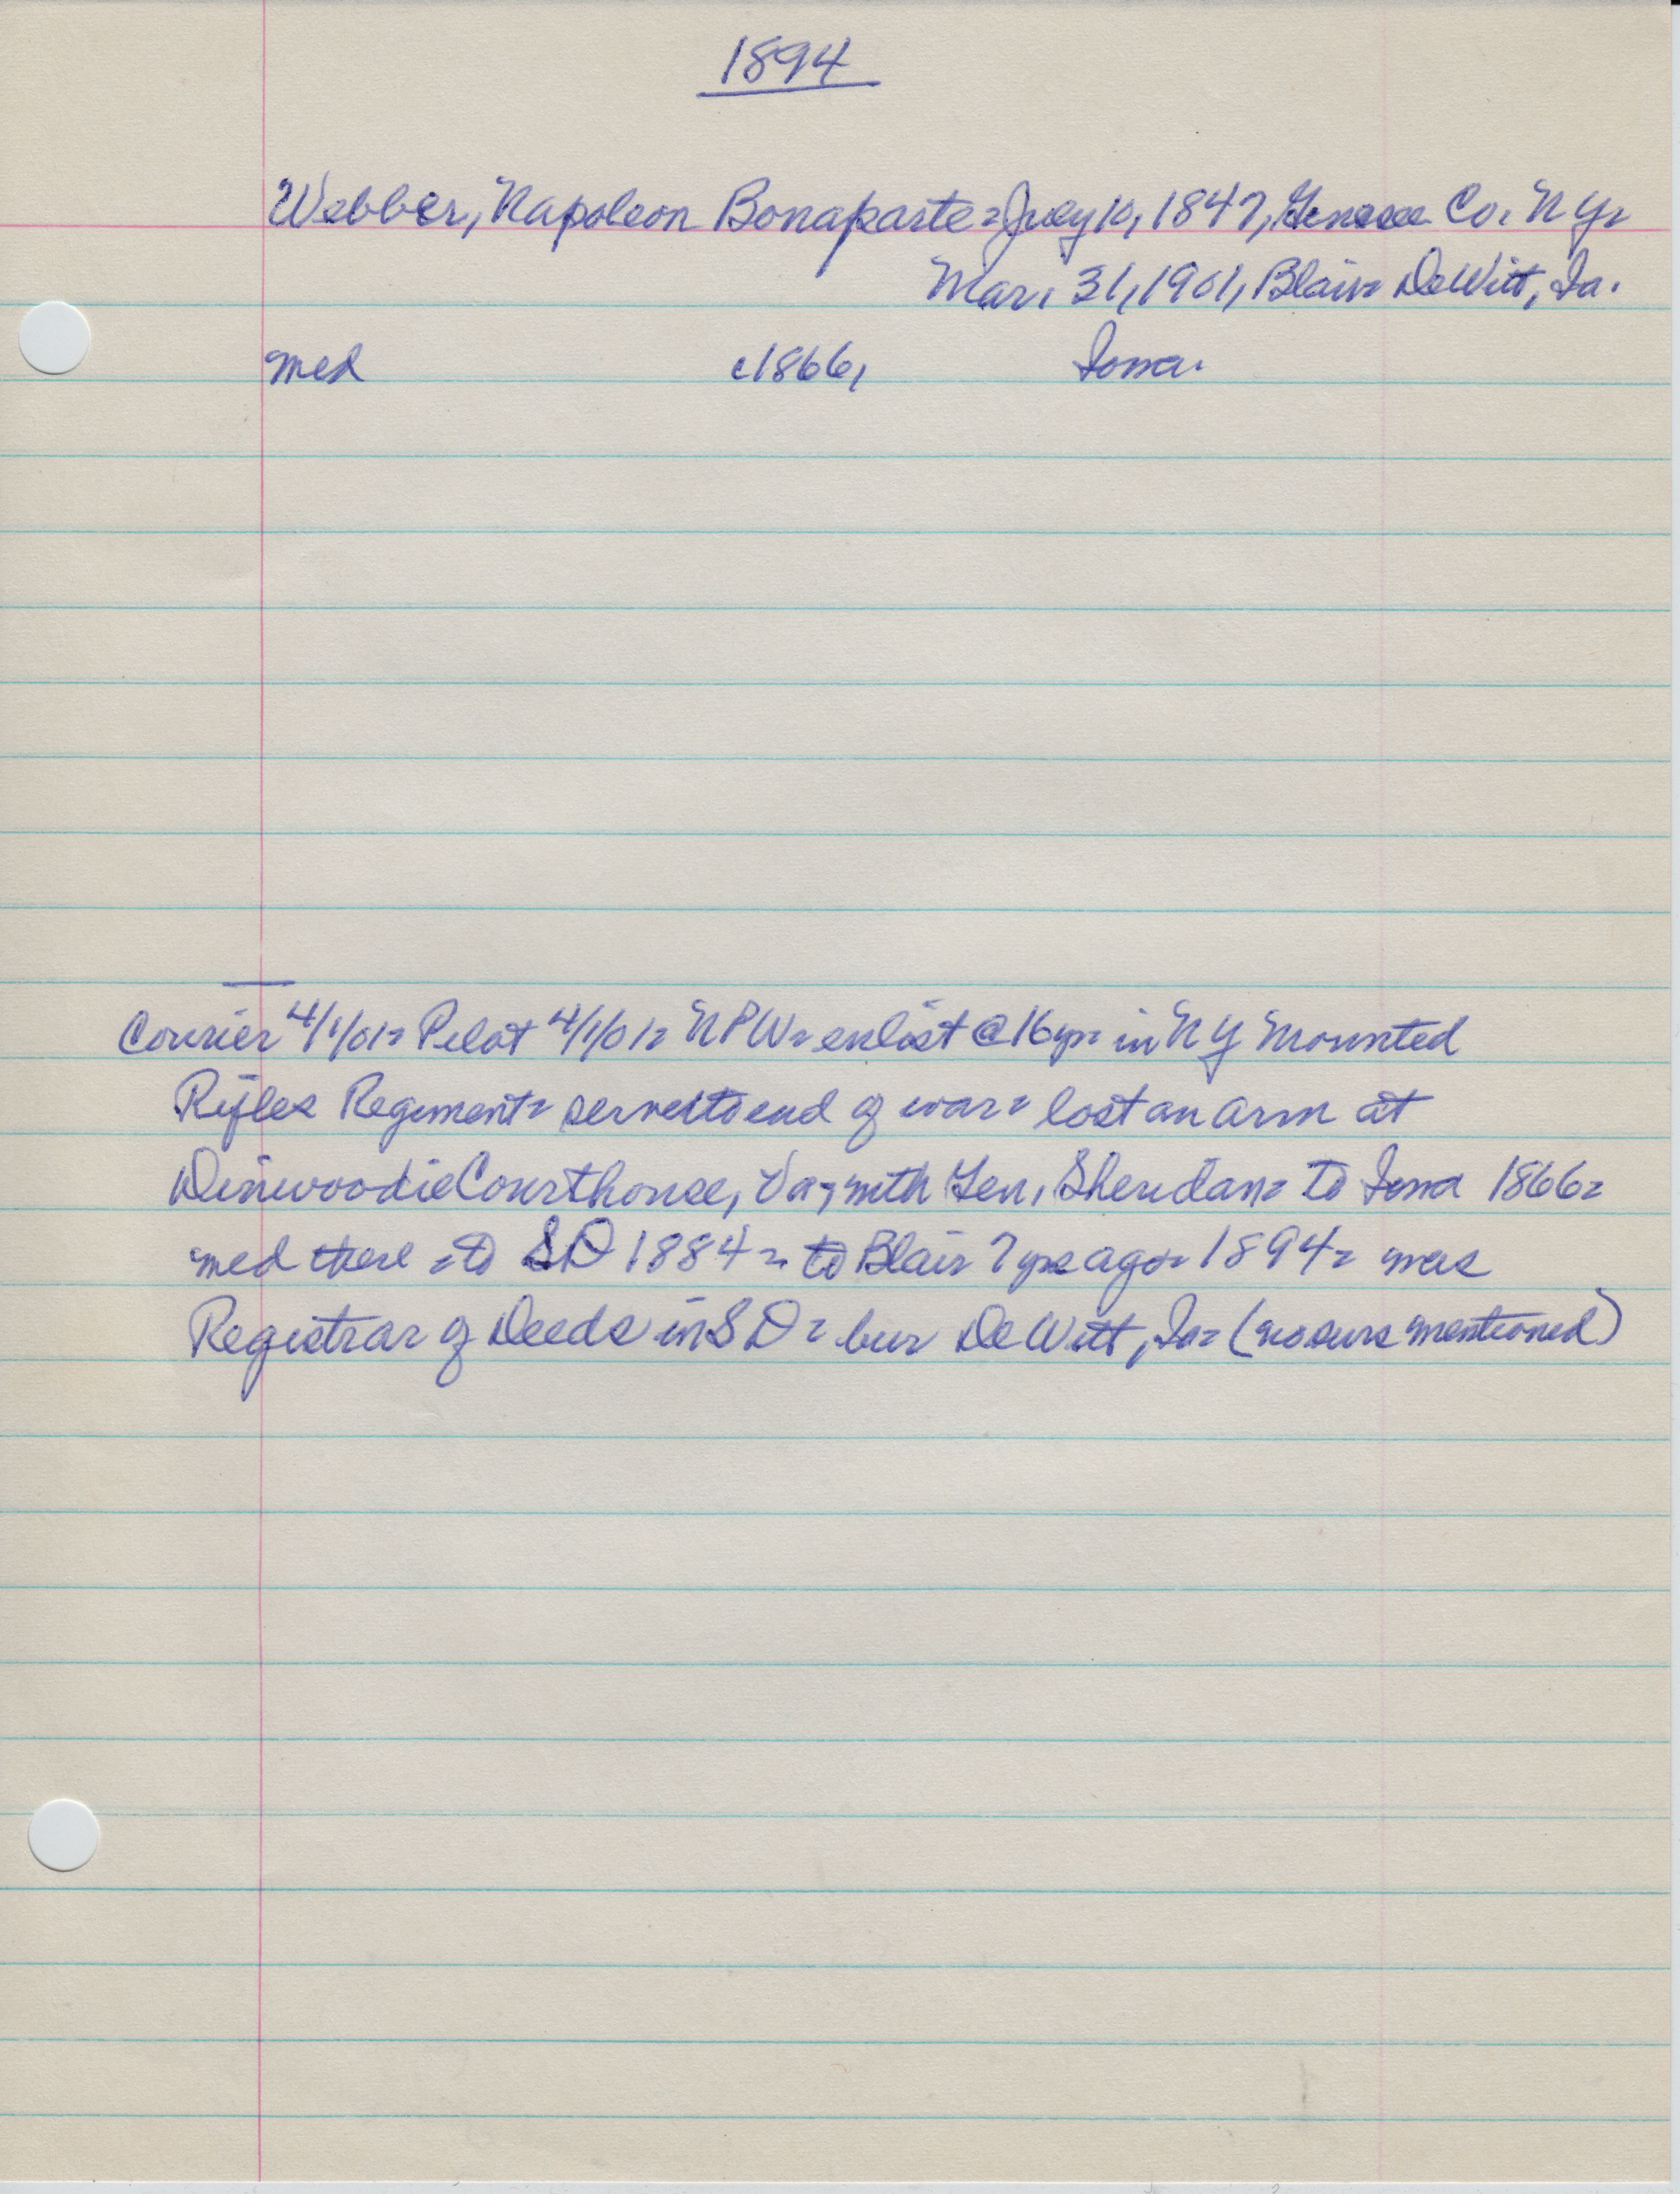 1894
Webber, Napoleon Bonaparte = July 10, 1847, Genesee Co. NY =
Mar. 31, 1901, Blair = DeWitt, Ia.
med c1866, Iowa.
Courier 4/1/01 = Pilot 4/1/01 = NPW = enlist @ 16 yr = in NY Mounted
Rifles Regiment = served to end of war = lost an arm at
Dinwoodie Courthouse, Va, with Gen. Sheridan = to Iowa 1866 =
med there = to SD 1884 = to Blair 7 yrs ago = 1894 = was
Registrar of Deeds in SD = bur DeWitt, Ia = (no surs mentioned)